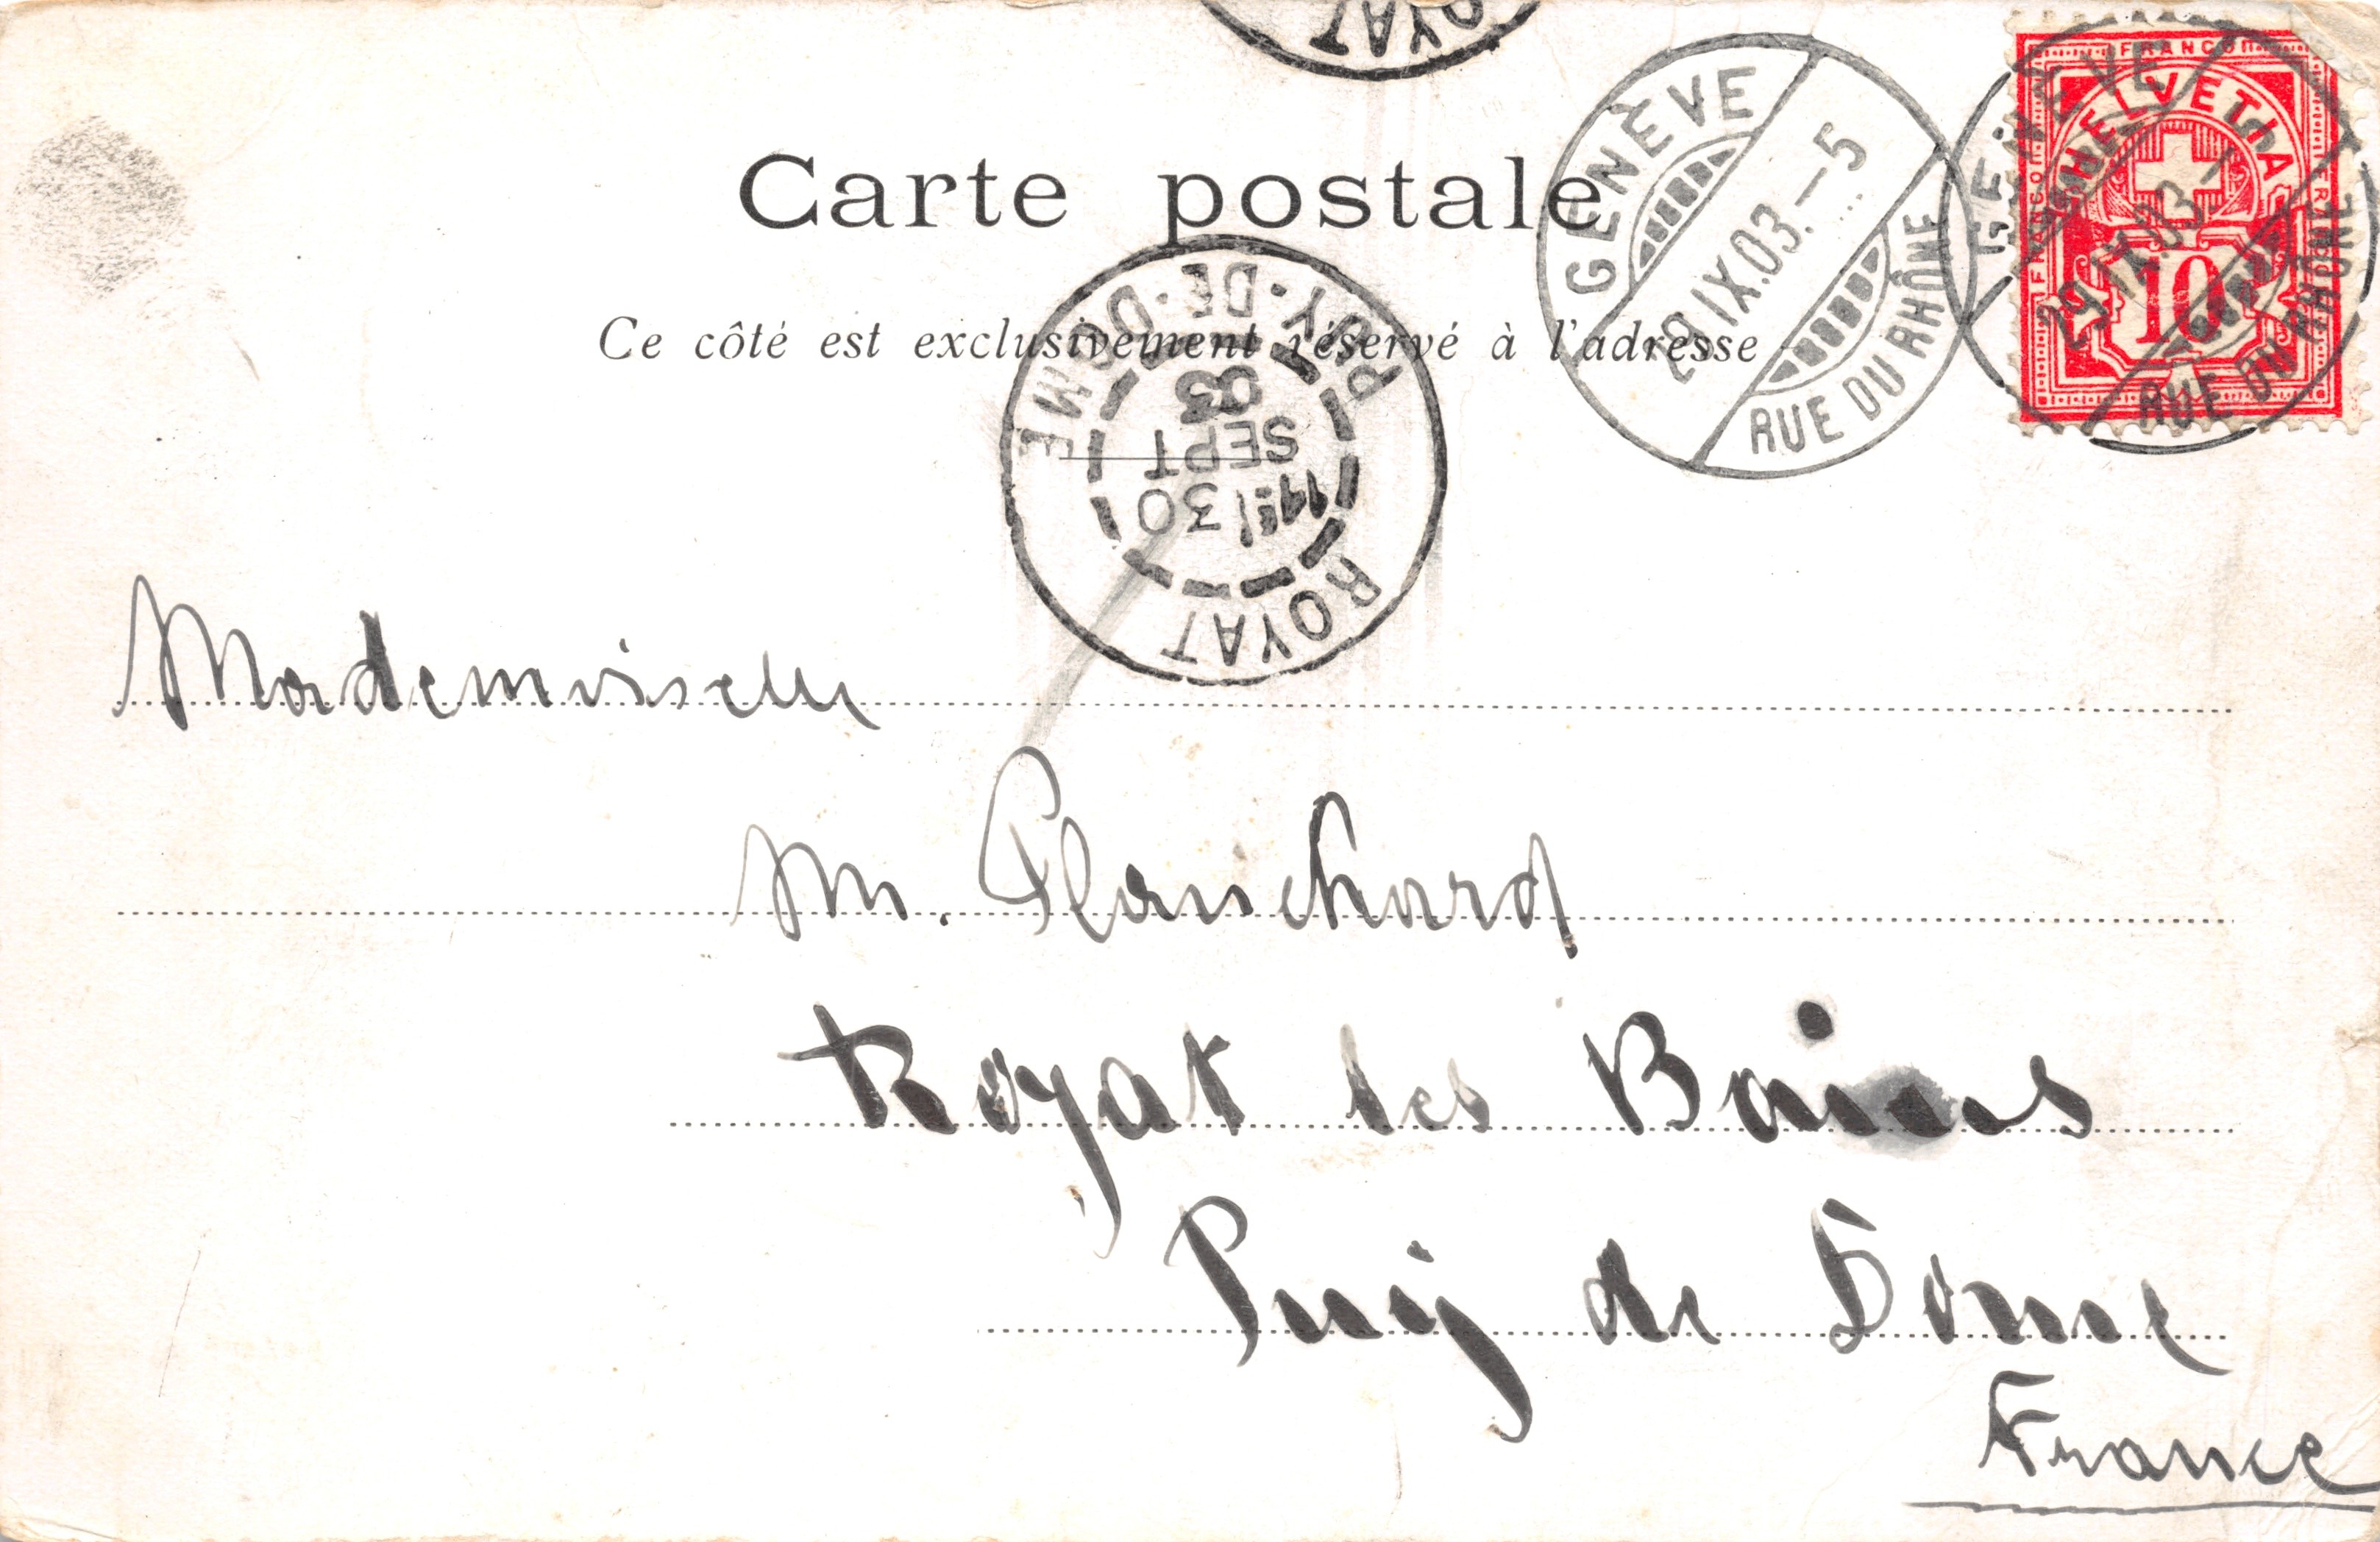 OYAT
Carte postale
Ce côté est exclusivement réservé à l'adresse
GENÈVE
29 IX.03.–5
RUE DU RHÔNE
GENÈVE
29 IX.03.–5
RUE DU RHÔNE
FRANCO
FRANCO
FRANCO
HELVETIA
10
ROYAT
30
SEPT
03
PUY-DE-DOME
Mademoiselle
M. Planchard
Royat les Bains
Puy de Dome
France